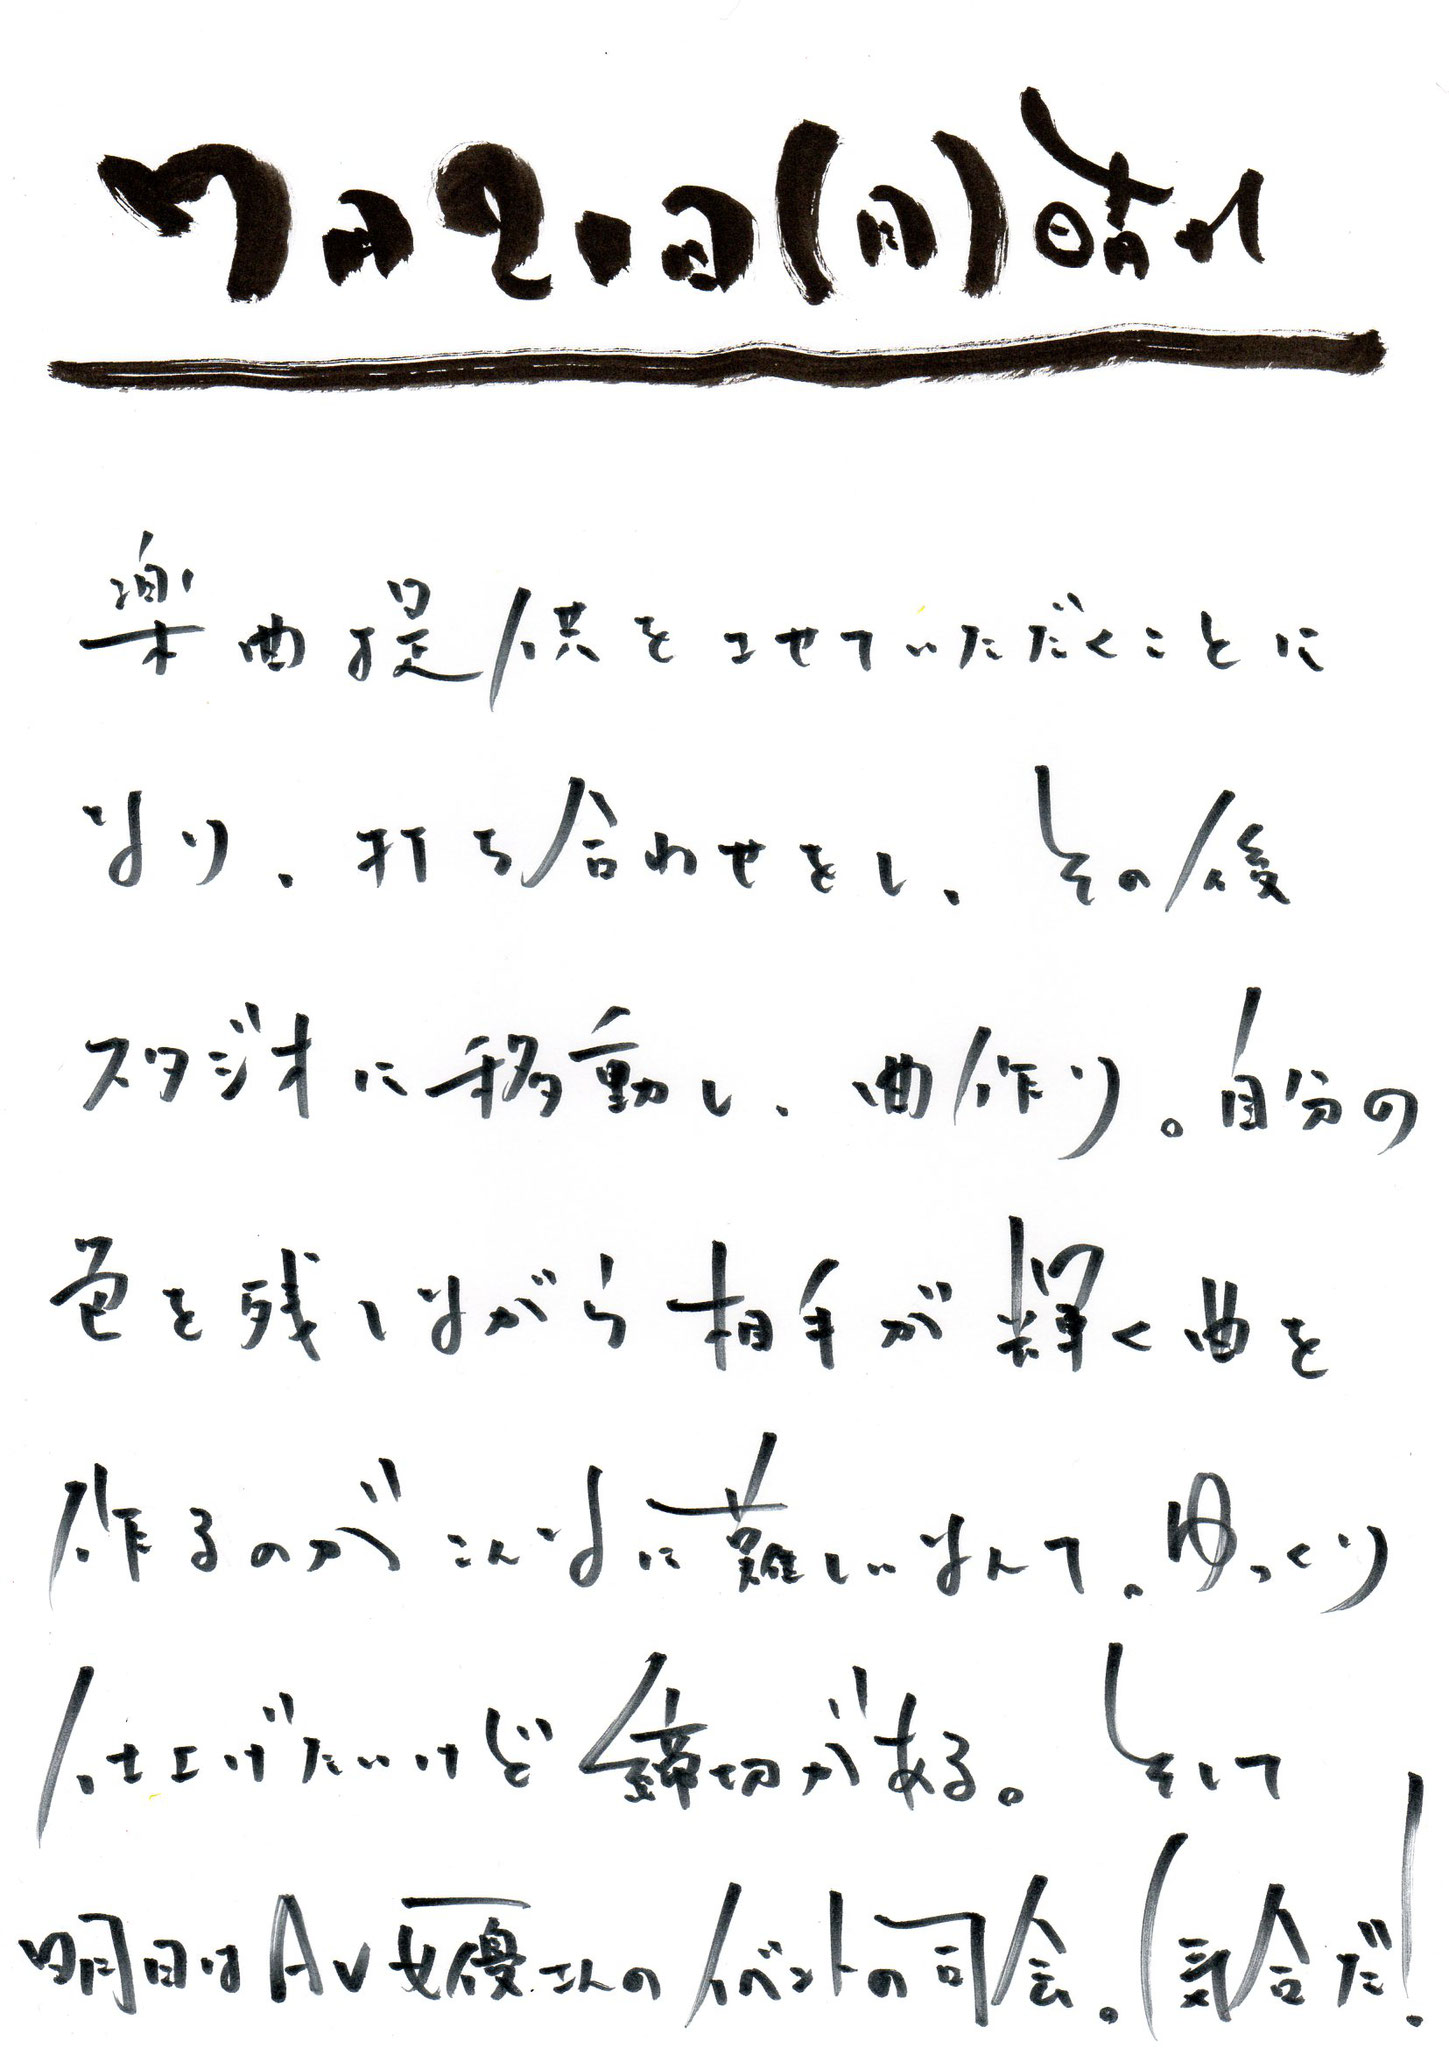 7月2日(月)晴れ
楽曲提供をさせていただくことに
なり、打ち合わせをし、その後
スタジオに移動し、曲作り。自分の
色を残しながら相手が輝く曲を
作るのがこんなに難しいなんて。ゆっくり
仕上げたいけど締切がある。そして
明日はAV女優さんのイベントの司会。(気合だ!